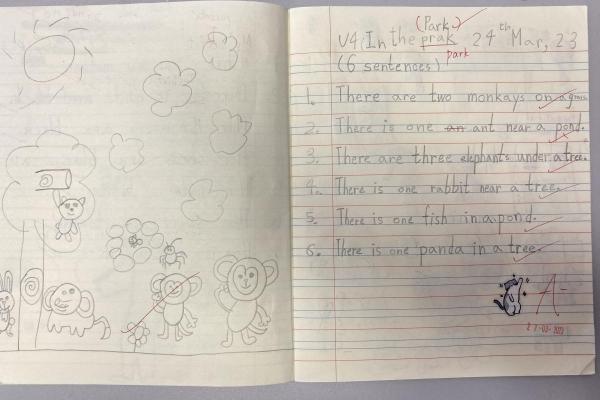 (Park)
U4 In the prak 24th Mar, 23
park
(6 sentences)
1. There are two monkeys on a
2. There is one an ant near a pond.
3. There are three elephants under a tree.
4. There is one rabbit near a tree.
5. There is one fish in a pond.
6. There is one panda in a tree.
A-